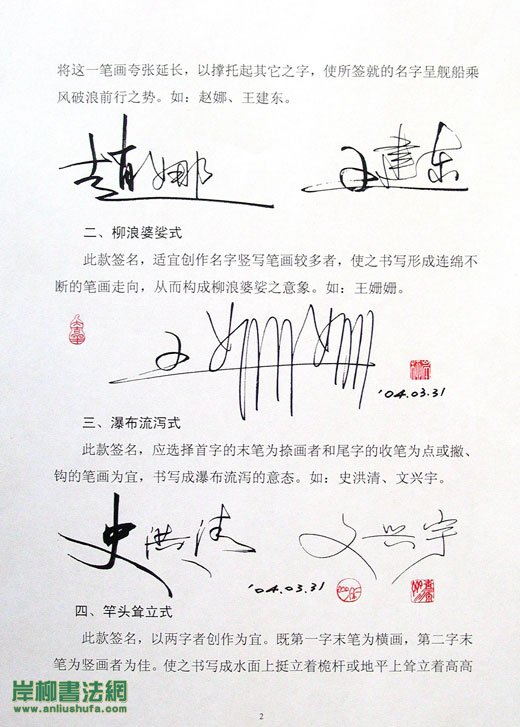 将这一笔画夸张延长，以撑托起其它之字，使所签就的名字呈舰船乘
风破浪前行之势。如：赵娜、王建东。
趙娜 王建东
二、柳浪婆娑式
此款签名，适宜创作名字竖写笔画较多者，使之书写形成连绵不
断的笔画走向，从而构成柳浪婆娑之意象。如：王姗姗。
王姗姗
'04.03.31
三、瀑布流泻式
此款签名，应选择首字的末笔为捺画者和尾字的收笔为点或撇、
钩的笔画为宜，书写成瀑布流泻的意态。如：史洪清、文兴宇。
史洪清 文兴宇
'04.03.31
四、竿头耸立式
此款签名，以两字者创作为宜。既第一字末笔为横画，第二字末
笔为竖画者为佳。使之书写成水面上挺立着桅杆或地平上耸立着高高
岸柳書法網
www.anliushufa.com
2